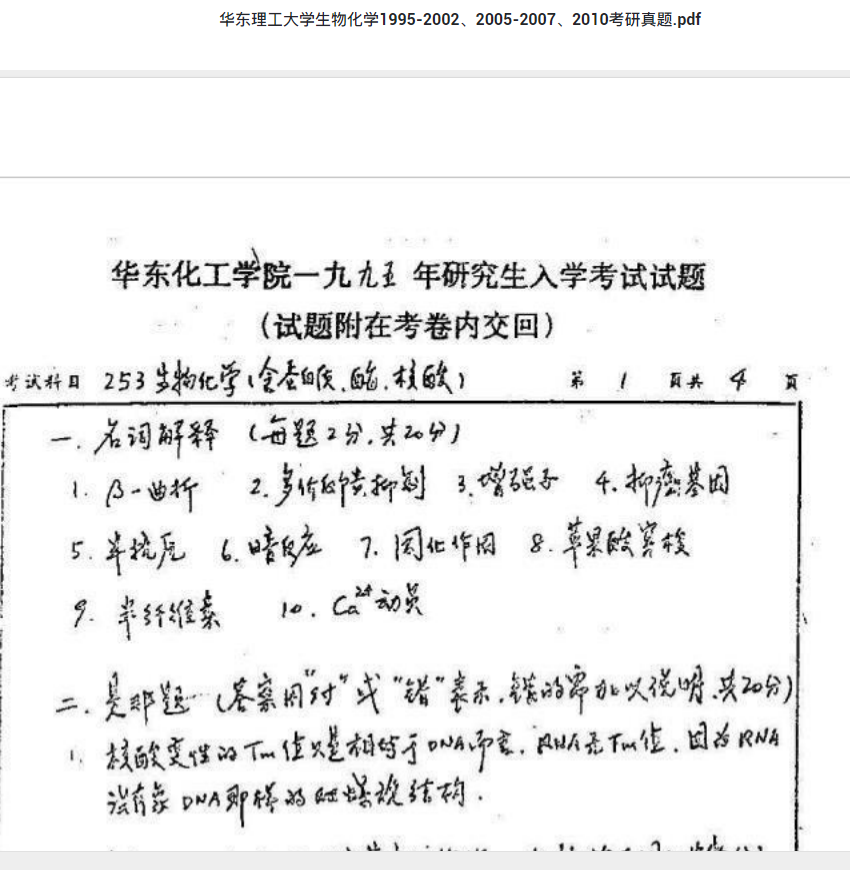 华东理工大学生物化学1995-2002、2005-2007、2010考研真题.pdf
华东化工学院一九九五年研究生入学考试试题
（试题附在考卷内交回）
考试科目 253生物化学(含蛋白质、酶、核酸) 第 1 页共 4 页
一. 名词解释 (每题2分,共20分)
1. β-曲折 2. 多价反馈抑制 3. 增强子 4. 抑癌基因
5. 半抗原 6. 暗反应 7. 同化作用 8. 苹果酸穿梭
9. 半纤维素 10. Ca²⁺动员
二. 是非题 (答案用"对"或"错"表示,错的需加以说明,共20分)
1. 核酸变性的Tm值只是相对于DNA而言,RNA无Tm值,因为RNA
没有象DNA那样的双螺旋结构.